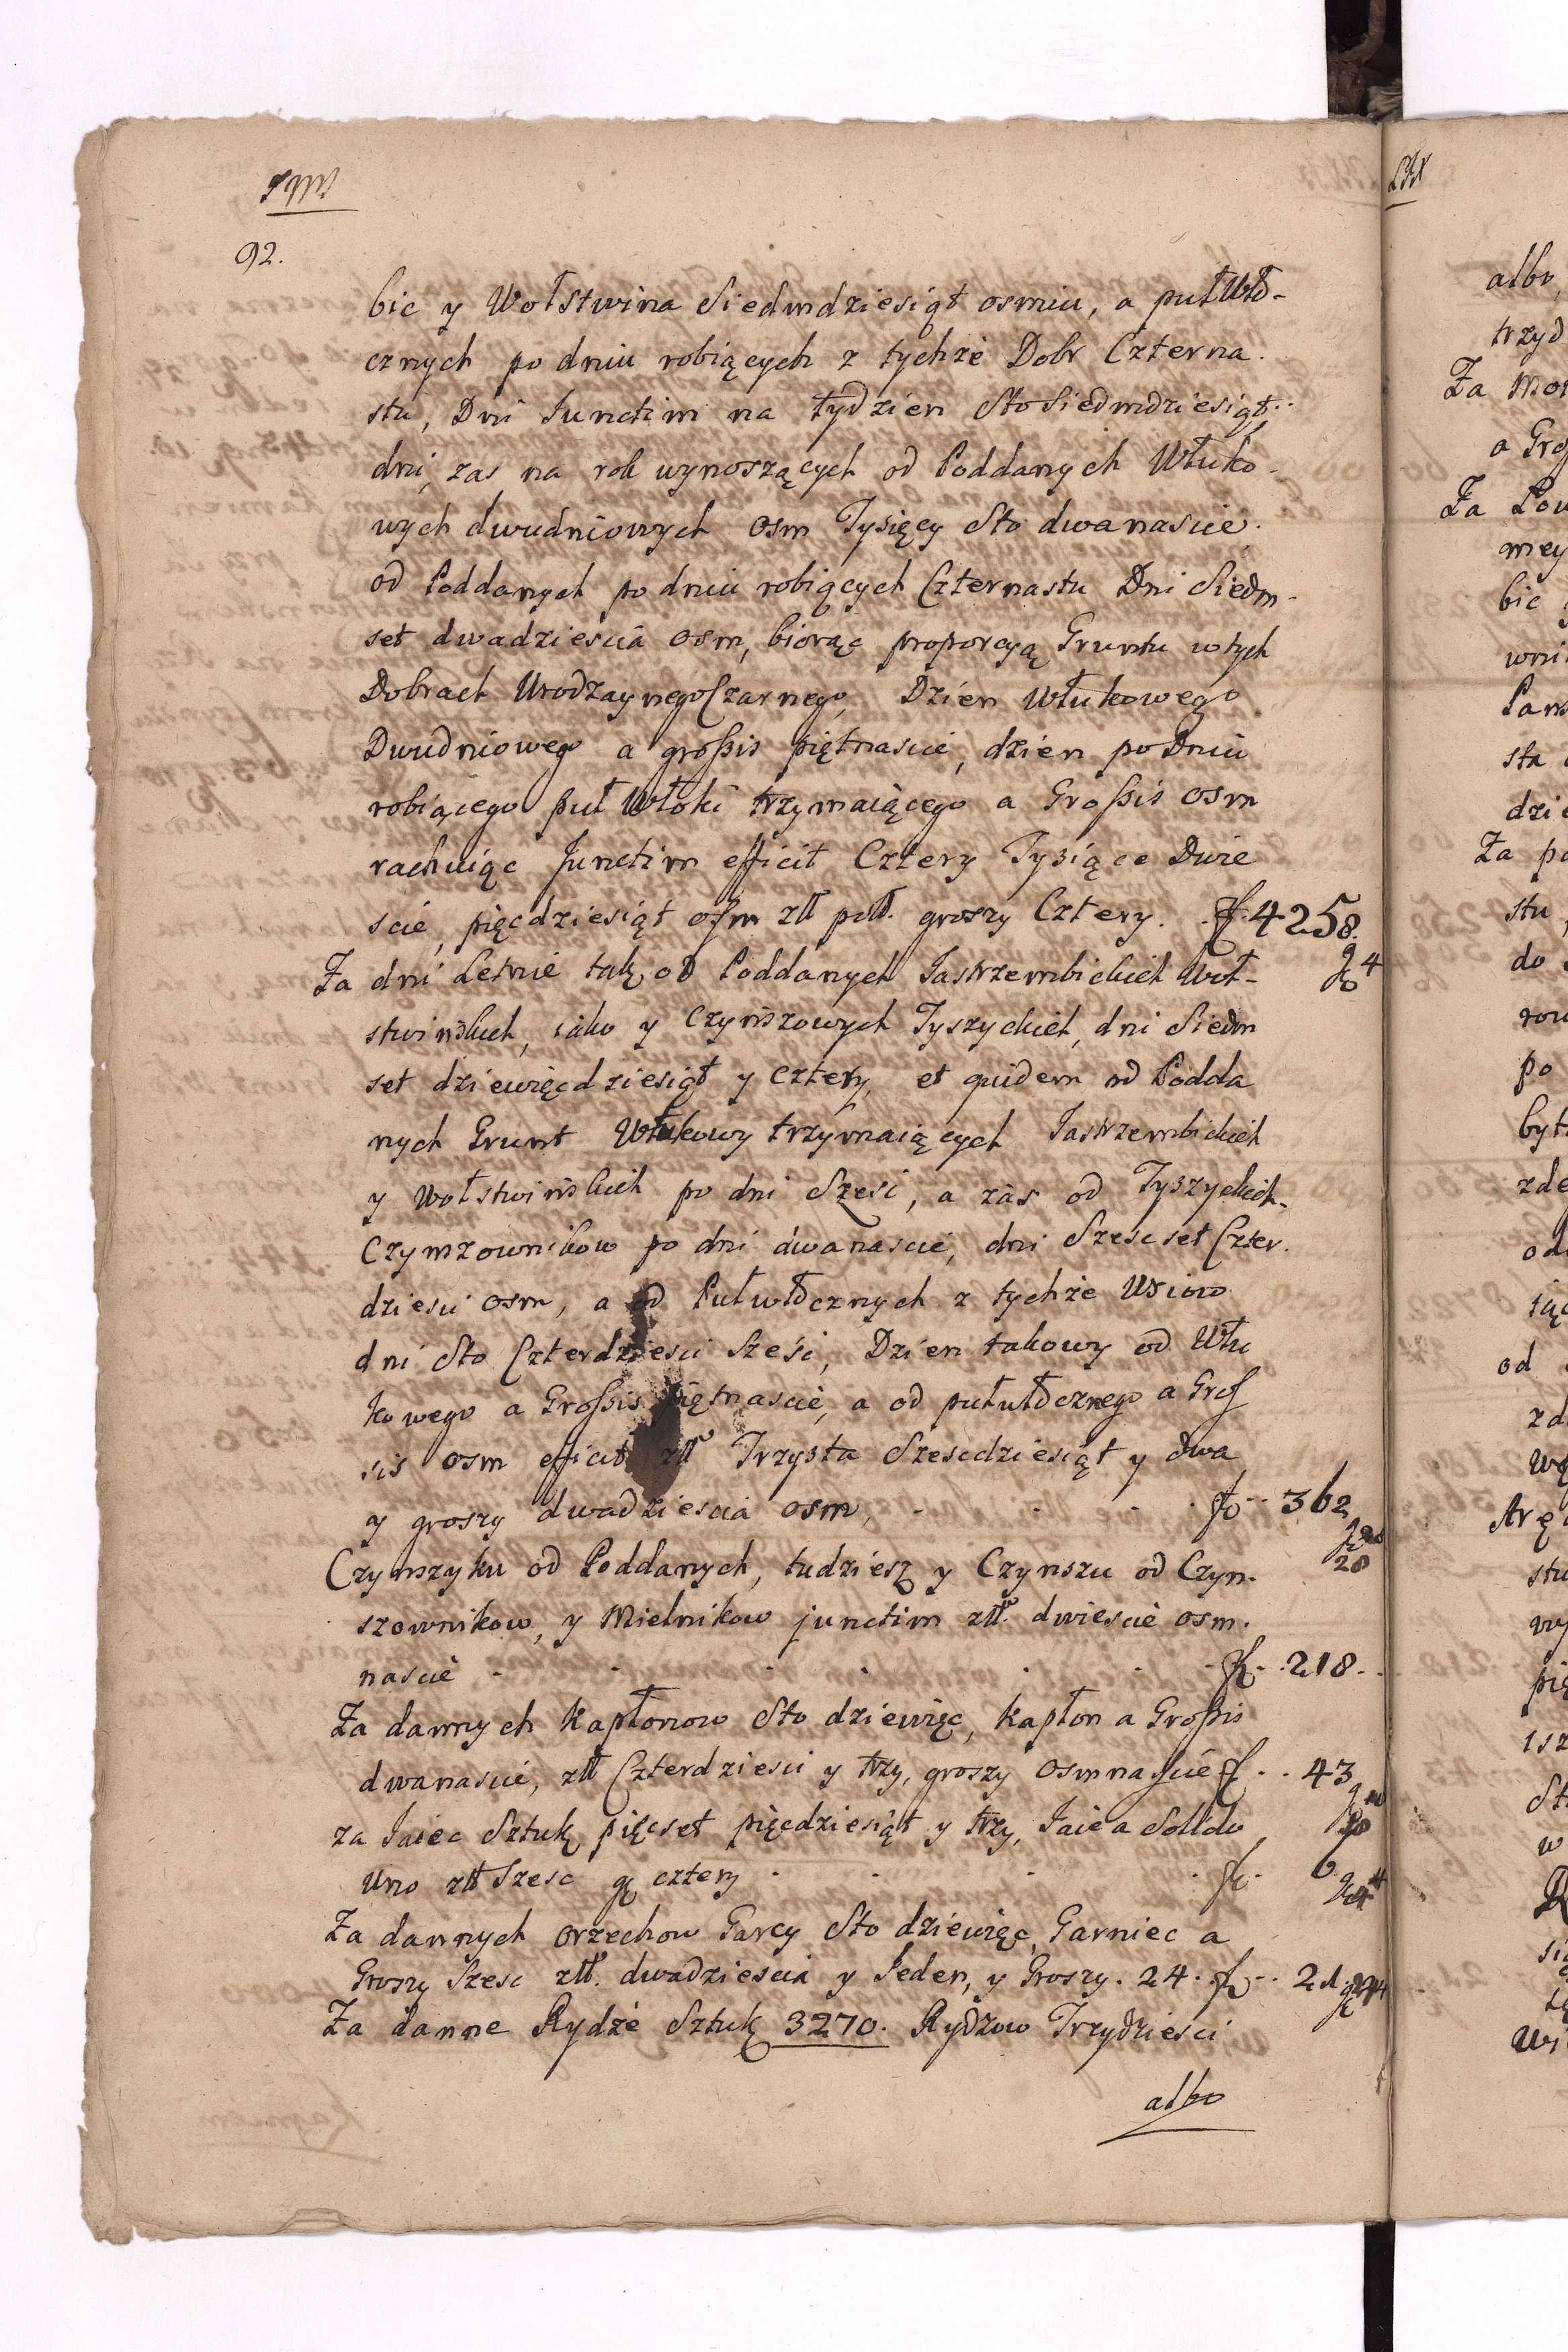 92.
bic y Wołstwina Siedmdziesiąt osmiu, a puł Włó-
cznych po dniu robiących z tychże Dobr Czterna
stu, Dni Junctim na Tydzien Sto Siedmdziesiąt
dni, zas na rok wynoszących od Poddanych Włuko-
wych dwudniowych osm Tysięcy Sto dwanascie
od Poddanych po dniu robiących Czternastu Dni Siedm-
set dwadziescia osm, biorąc proporcyą Gruntu w tych
Dobrach Urodzaynego Czarnego, Dzien Włukowego
Dwudniowego a grossis piętnascie, dzien po Dniu
robiącego puł Włoki trzymaiącego a Grossis osm
rachuiąc Junctim efficit Cztery Tysiące Dwie
scie, pięcdziesiąt osm zł pol. groszy Cztery. f 4258.
g 4
Za dni Letnie tak od Poddanych Jastrzembickich Woł-
stwinskich, iako y Czynszowych Tyszyckich, dni Siedm
set dziewięcdziesiąt y cztery, et quidem od Podda
nych Grunt Włukowy trzymaiących Jastrzembickich
y Wołstwinskich po dni Szesc, a zas od Tyszyckich
Czymzownikow po dni dwanascie, dni Szescset Czter-
dziesci osm, a od Pułwłocznych z tychże Wsiow
dni Sto Czterdziesci Szesc, Dzien takowy od Włu
kowego a Grossis piętnascie, a od pułwłócznego a Gros
sis osm efficit zł Trzysta Szescdziesiąt y dwa
y groszy dwadziescia osm, f 362
28
Czynszyku od Poddanych, tudziesz y Czynszu od Czyn-
szownikow, y Mielnikow junctim zł. dwiescie osm-
nascie f 218
Za dannych Kapłonow Sto dziewięc, kapłon a Grossis
dwanascie, zł Czterdziesci y trzy, groszy Osmnascie f 43
za Jaiec Sztuk pięcset pięcdziesiąt y trzy, Jaie a Solido
Uno zł Szesc g cztery f 6
g 4
Za dannych orzechow Garcy Sto dziewięc, Garniec a
Groszy Szesc zł. dwadziescia y Jeden, y Groszy. 24. f 21 g 24
Za danne Rydze Sztuk 3270. Rydzow Trzydziesci
albo